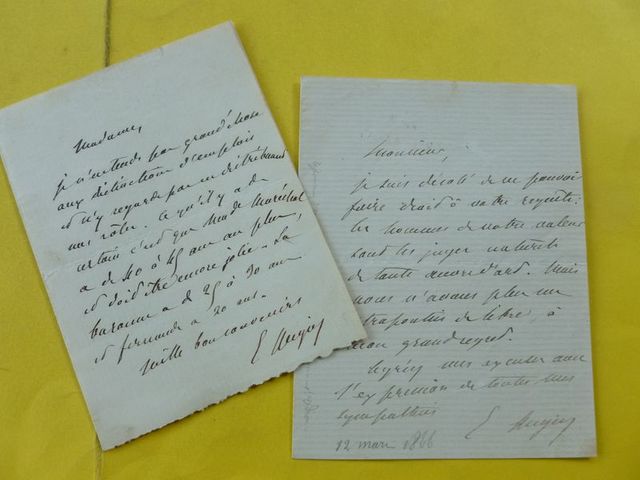 Madame,
je n'entends pas grand'chose
aux distinctions d'emplois
et n'y regarde pas en distribuant
mes rôles. Ce qu'il y a de
certain c'est que Mme Maréchal
a de 40 à 45 ans au plus,
et doit être encore jolie. La
baronne a de 25 à 30 ans
et fernande a 20 ans.
Mille bons souvenirs
E Augier
Monsieur,
je suis désolé de ne pouvoir
faire droit à votre requête.
les hommes de votre valeur
sont les juges naturels
de toute œuvre d'art. Mais
nous n'avons plus un
strapontin de libre, à
mon grand regret.
Agréez mes excuses avec
l'expression de toutes mes
sympathies
E Augier
12 mars 1866